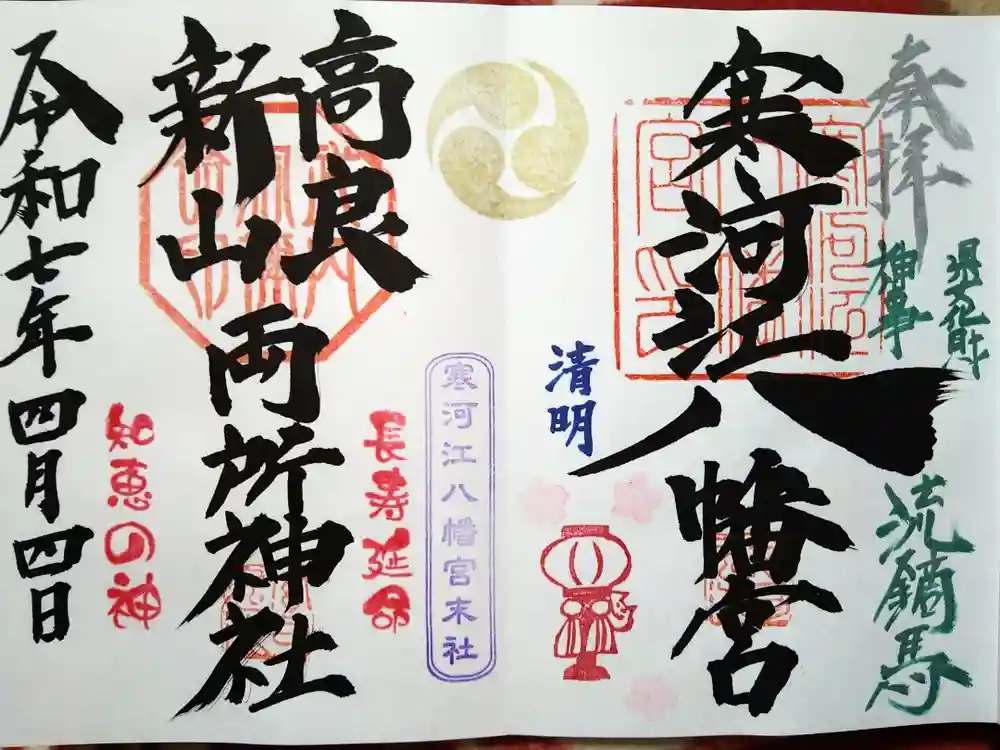 奉拝
県文化財
神事
流鏑馬
寒河江八幡宮
清明
寒河江八幡宮末社
高良
新山両所神社
長寿延命
知恵の神
令和七年四月四日